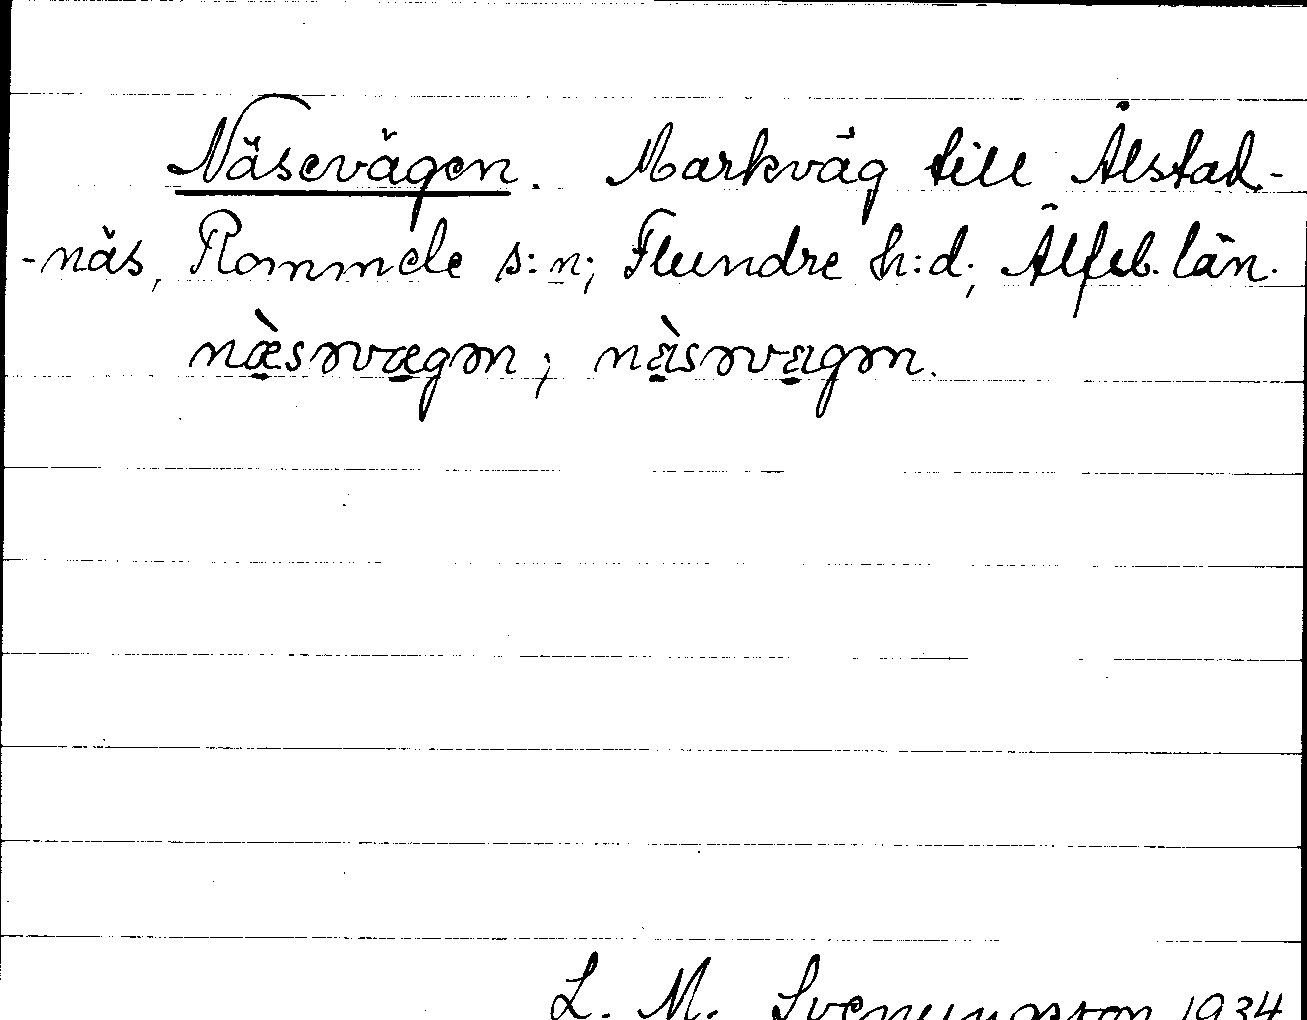 Näsevägen. Markväg till Ålstad-
-näs, Rommele s:n; Flundre h:d; Älfsb. län.
næ̀səvægən; nä̀səvägən.
L. M. Svenungsson 1934